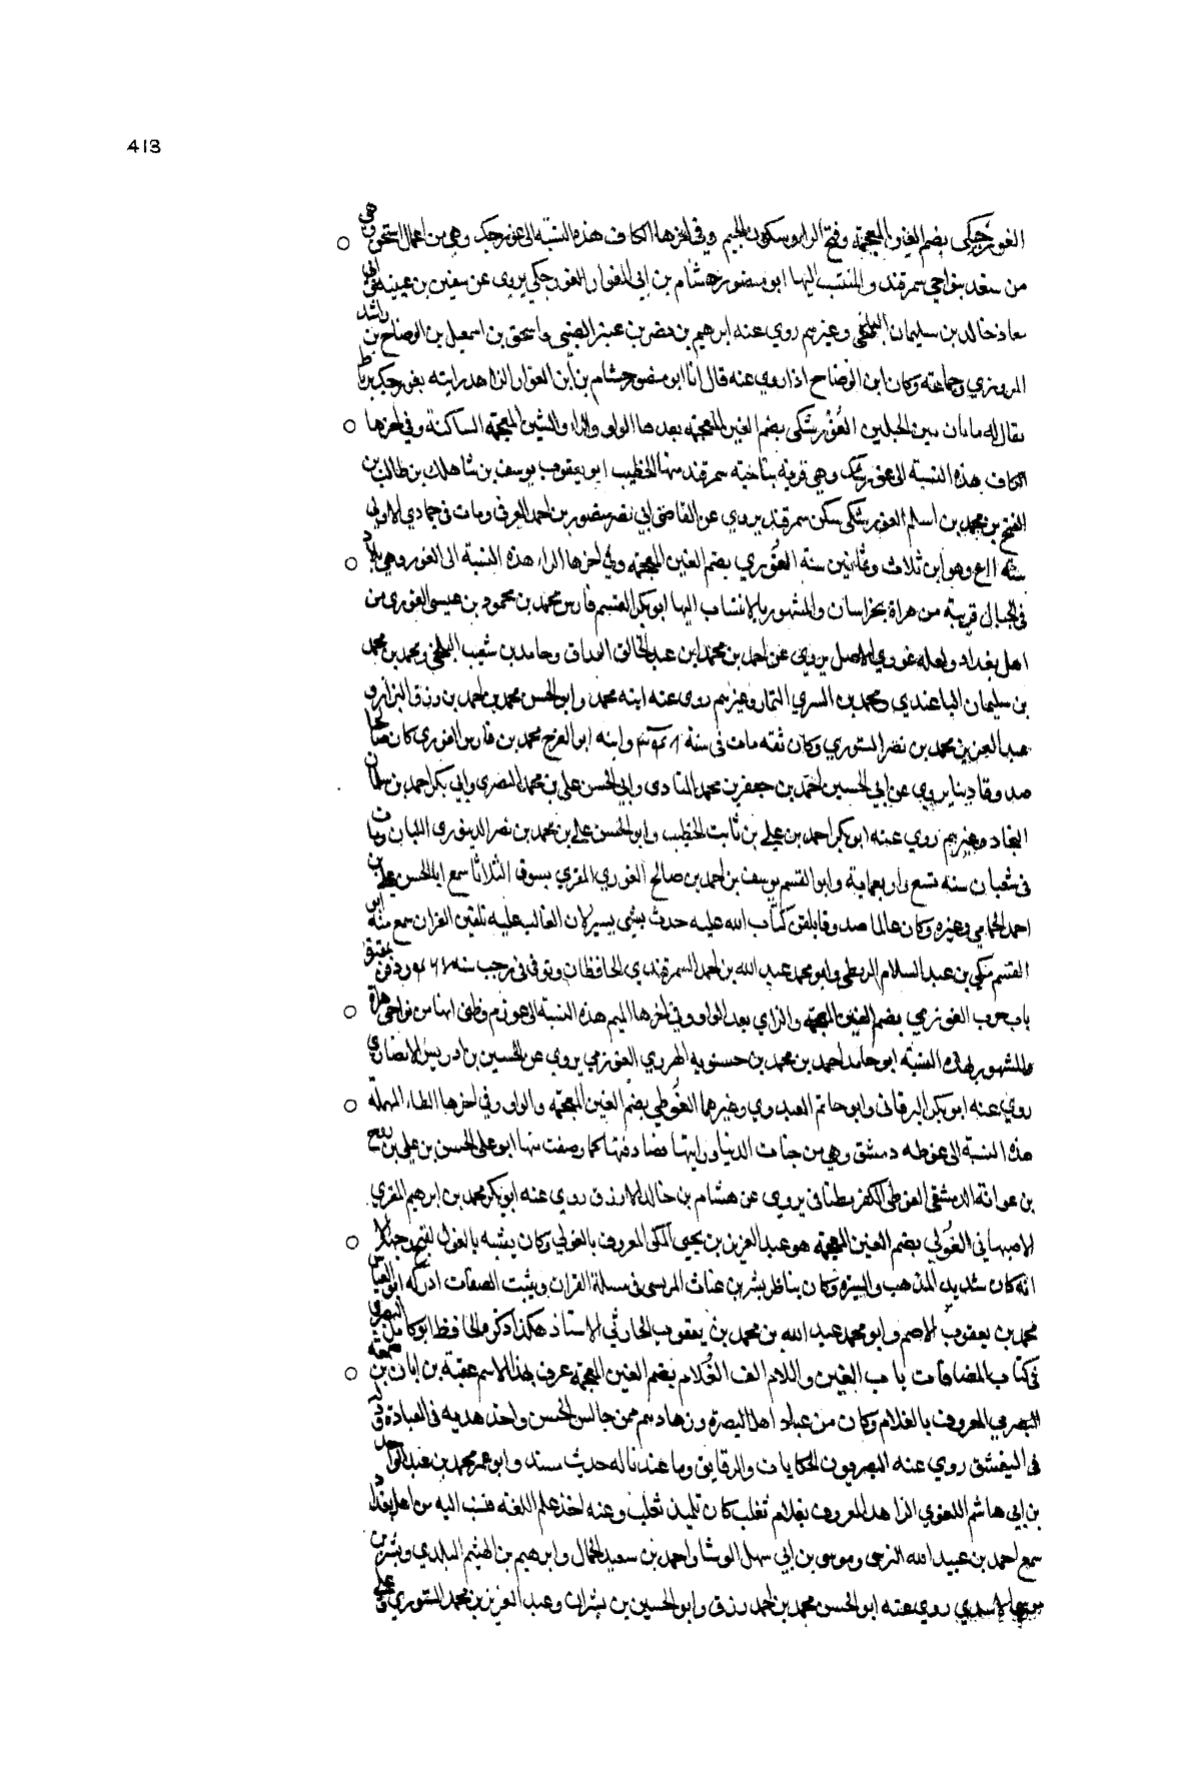 413
الغورجكي بضم الغين المعجمة وفتح الراء وسكون الجيم وفي اخرها الكاف هذه النسبة الى غورجك وهي من اعمال اشتيخن وهي
من سغد بنواحي سمرقند والمنتسب اليها ابو منصور هشام بن ابي الغوار الغورجكي يروي عن سفين بن عيينة وابي
معاذ خالد بن سليمان البلخي وغيرهم روي عنه ابرهيم بن نصر بن عنبر الضبي واسحق بن اسمعيل بن الوضاح بن راشد
المروزي وجماعة وكان ابن الوضاح اذا روي عنه قال انا ابو منصور هشام بن ابي الغوار الزاهد رايته بغورجك برباط
يقال له مامان بين الجبلين الغورشكي بضم الغين المعجمة بعدها الواو والراء والشين المعجمة الساكنة وفي اخرها
الكاف هذه النسبة الى غورشك وهي قرية بناحية سمرقند منها الخطيب ابو يعقوب يوسف بن شاهك بن طالب بن
الفتح بن محمد بن اسلم الغورشكي سكن سمرقند يروي عن القاضي ابي نصر منصور بن احمد الغزقي ومات في جمادي الاولي
سنة وهو ابن ثلاث وثمانين سنة الغوري بضم الغين المعجمة وفي اخرها الراء هذه النسبة الى الغور وهي بلاد
في الجبال قريبة من هراة بخراسان والمشهور بالانتساب اليها ابو بكر القسم فارس محمد بن محمود بن عيسى الغوري من
اهل بغداد ولعله غوري الاصل يروي عن احمد بن محمد ابن عبد الخالق الوراق وحامد بن شعيب البلخي ومحمد بن محمد
بن سليمان الباغندي ومحمد بن السري التمار وغيرهم روى عنه ابنه محمد وابو الحسن محمد بن احمد بن رزق البزاز و
عبد العزيز بن محمد بن نصر الستوري وكان ثقة مات في سنة وابنه ابو الفرج محمد بن فارس الغوري كان شيخا
صدوقا دينا يروي عن ابي الحسين احمد بن جعفر بن محمد المنادى وابي الحسن علي بن محمد المصري وابي بكر احمد بن سلمان
النجاد وغيرهم روي عنه ابو بكر احمد بن علي بن ثابت الخطيب وابو الحسن علي بن محمد بن نصر الدينوري اللبان ومات
في شعبان سنة تسع واربعماية وابو القسم يوسف بن احمد بن صالح الغوري المقري بسوق الثلاثا سمع ابا الحسن علي بن
احمد الحمامي وغيره وكان عالما صدوقا يلقن كتاب الله عليه حدث بشي يسير لان الغالب عليه تلقين القران سمع منه ابو
القسم مكي بن عبد السلام الرميلي وابو محمد عبد الله بن احمد السمرقندي الحافظان وتوفي في رجب سنه ودفن بمقبرة
باب حرب الغوزمي بضم الغين المعجمة والزاي بعد الواو وفي اخرها الميم هذه النسبة الى غوزم وظني انها من نواحي هراة
والمشهور بهذه النسبة ابو حامد احمد بن محمد بن حسنويه الهروي الغوزمي يروي عن الحسين بن ادريس الانصاري
روي عنه ابو بكر البرقاني وابو حاتم العبدوي وغيرهما الغوطي بضم الغين المعجمة والواو وفي اخرها الطاء المهملة
هذه النسبة الى غوطه دمشق وهي من جنات الدنيا ورايتها فصادفتها كما وصفت منها ابو علي الحسن بن علي بن
بن عوانة الدمشقي الغوطي الكفربطناني يروي عن هشام بن خالد الازرق روي عنه ابو بكر محمد بن ابرهيم المقري
الاصبهاني الغولي بضم الغين المعجمة هو عبد العزيز بن يحيى المكي المعروف بالغولي وكان يشبه بالغول لقبح وجهه الا
انه كان شديد المذهب والسيرة وكان يناظر بشر بن غياث المريسي في مسلة القران ويثبت الصفات ادركه ابو العباس
محمد بن يعقوب الاصم وابو محمد عبد الله بن محمد بن يعقوب الحارثي الاستاذ هكذا ذكره الحافظ ابو كامل البصري
في كتاب المضافات باب الغين واللام الف الغلام بضم الغين المعجمة عرف بهذا الاسم عتبة بن ابان بن
البصري المعروف بالغلام وكان من عباد اهل البصرة وزهادهم ممن جالس الحسن واخذ هديه في العبادة
في التقشف روي عنه البصريون الحكايات والرقايق وما عندنا له حديث مسند وابو عمر محمد بن عبد الواحد
بن ابي هاشم اللغوي الزاهد المعروف بغلام ثعلب كان تلميذ ثعلب وعنه اخذ علم اللغة فنسب اليه من اهل بغداد
سمع احمد بن عبيد الله النرسي وموسى بن ابي سهل الوشا واحمد بن سعيد الجمال وابرهيم بن الهيثم البلدي وبشر بن
موسى الاسدي روي عنه ابو الحسن محمد بن احمد رزق وابو الحسين بن بشران وعبد العزيز بن محمد الستوري